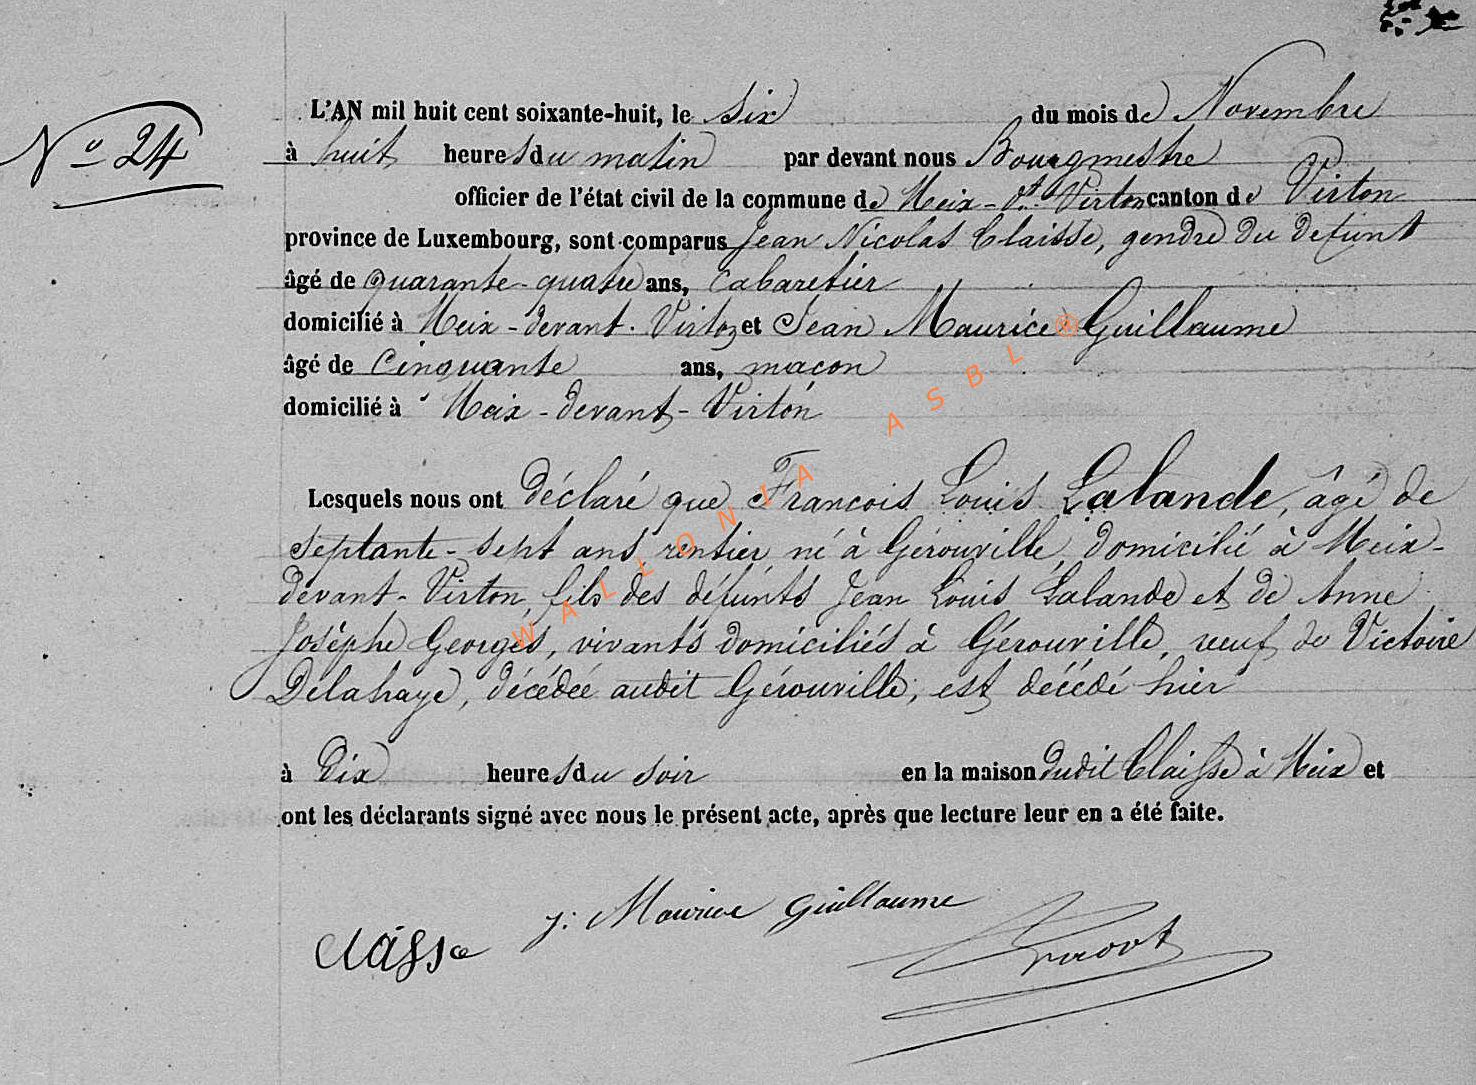 L'AN mil huit cent soixante-huit, le six du mois de Novembre
No 24
à huit heures du matin par devant nous Bourgmestre
officier de l'état civil de la commune de Meix-dt Virton canton de Virton
province de Luxembourg, sont comparus Jean Nicolas Claisse, gendre du défunt
âgé de quarante-quatre ans, cabaretier
domicilié à Meix-devant-Virton et Jean Maurice Guillaume
âgé de cinquante ans, maçon
domicilié à Meix-devant-Virton
Lesquels nous ont déclaré que François Louis Lalande, âgé de
septante-sept ans rentier, né à Gérouville, domicilié à Meix-
devant-Virton, fils des défunts Jean Louis Lalande et de Anne
Josèphe Georges, vivants domiciliés à Gérouville, veuf de Victoire
Delahaye, décédée audit Gérouville, est décédé hier
à dix heures du soir en la maison dudit Claisse à Meix et
ont les déclarants signé avec nous le présent acte, après que lecture leur en a été faite.
J: Maurice Guillaume
Classe
WALLONIA ASBL ®